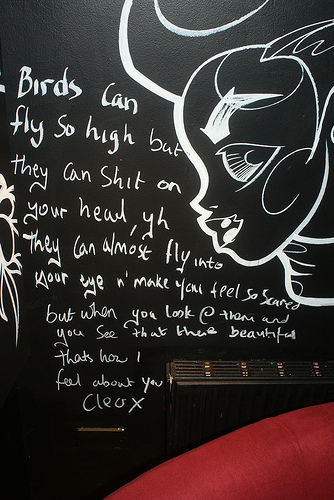 Birds can
fly so high but
they can shit on
your head, yh
they can almost fly into
your eye n' make you feel so scared
but when you look @ them and
you see that there beautiful
thats how I
feel about you
Cleo X